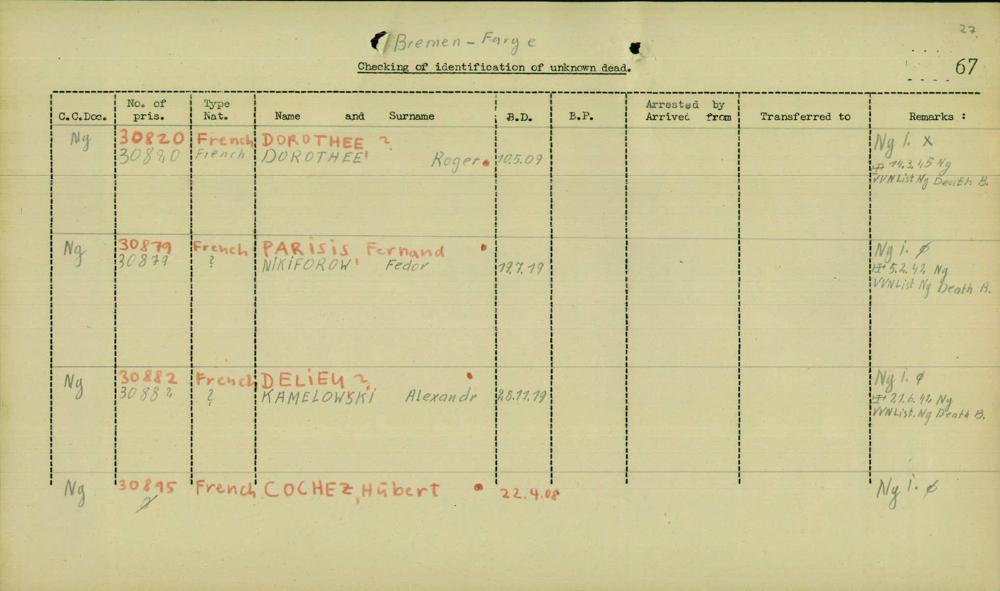 27
Bremen - Farge
Checking of identification of unknown dead.
67
C.C.Doc. No. of pris. Type Nat. Name and Surname B.D. B.P. Arrested by Arrived from Transferred to Remarks :
Ng 30820 French DOROTHEE ? Ng i. x
30820 French DOROTHEE' Roger 10.5.09 14.3.45 Ng
VVN List Ng Death B.
Ng 30879 French PARISIS Fernand Ng i. ø
30879 ? NIKIFOROW' Fedor 19.7.19 5.2.42 Ng
VVN List Ng Death B.
Ng 30882 French DELIEU ? Ng i. ø
30882 ? KAMELOWSKI Alexandr 28.11.19 21.6.42 Ng
VVN List. Ng Death B.
Ng 30895 French COCHEZ, Hübert 22.4.08 Ng i. ø